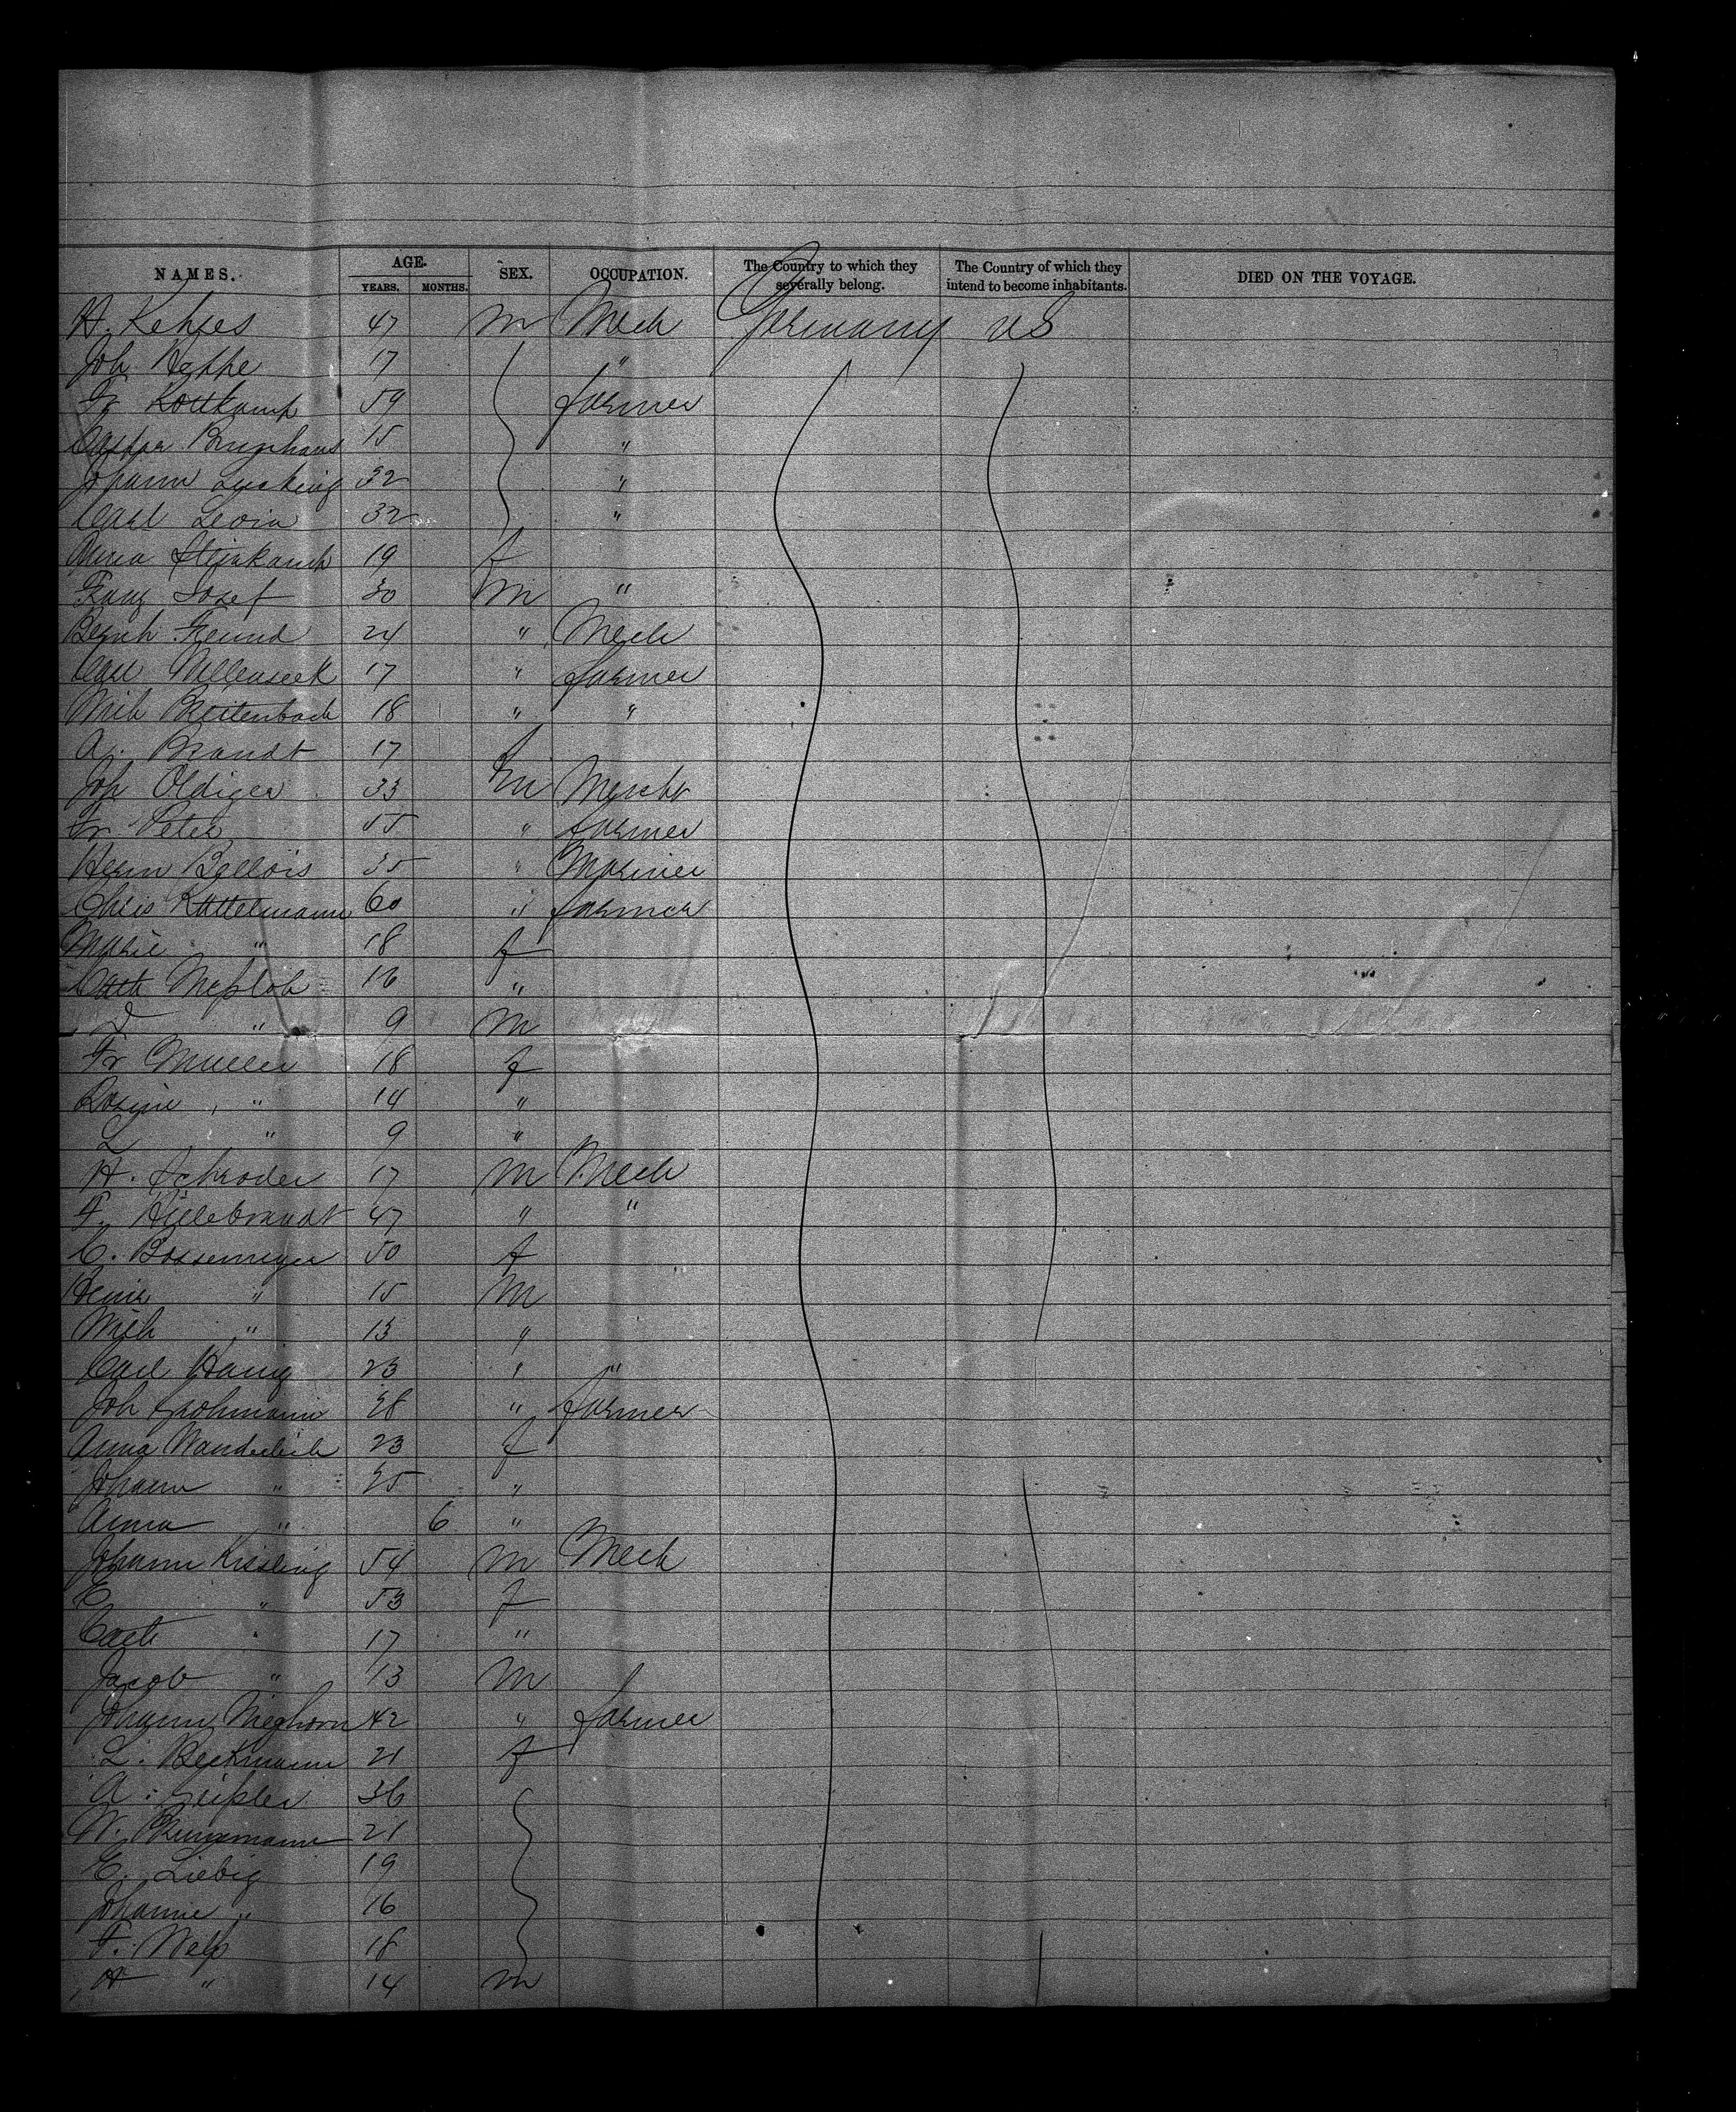 NAMES. AGE. YEARS. MONTHS. SEX. OCCUPATION. The Country to which they severally belong. The Country of which they intend to become inhabitants. DIED ON THE VOYAGE.
H. Kehses 47 m Mech Germany US
Joh Heppe 17 "
Fr Kottkamp 59 farmer
Caspar Brüghaus 15 "
Johann Lucking 32 "
Carl Levin 32 "
Anna Steinkamp 19 f
Franz Josef 30 m "
Bernh Freund 24 " Mech
Carl 17 " farmer
Wilh Breitenbach 18 " "
A. Brandt 17 f
Joh Oldiges 33 m Mercht
Fr Peter 55 " farmer
Herm Bellois 35 " Mariner
Chris Kattelmann 60 " farmer
Marie " 18 f
Cath Meßloh 16 "
D " 9 m
Fr Muller 18 f
Rosine " 14 "
L " 9 "
H. Schroder 17 m Mech
F. Hillebrandt 47 " "
C. Bossemeyer 50 f
Heinr " 15 m
Wilh " 13 "
Carl Hanig 23 " "
Joh Grohmann 28 " farmer
Anna Wanderlich 23 f
Johann " 25 "
Anna " 6 "
Johann Kissling 54 m Mech
E " 53 f
Cath " 17 "
Jacob " 13 m
Johann Nieghorn 42 " farmer
L. Beckmann 21 f
A. Geißler 36
W. 21
E. Liebig 19
Johanne " 16
F. Welp 18
H " 14 m